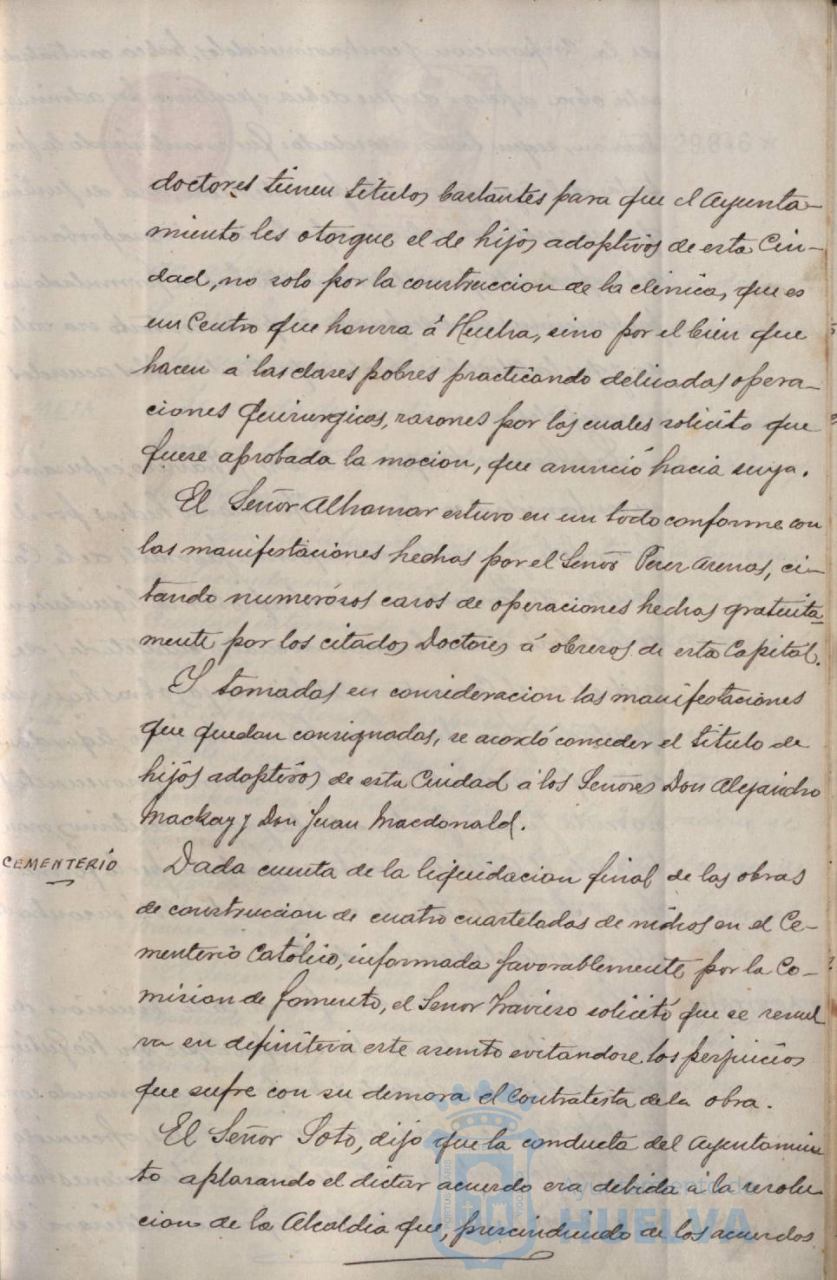 doctores tienen titulos bastantes para que el Ayunta-
miento les otorgue el de hijos adoptivos de esta Ciu-
dad, no solo por la construccion de la clinica, que es
un Centro que honrra á Huelva, sino por el bien que
hacen á las clases pobres practicando delicadas opera-
ciones quirurgicas, rasones por las cuales solicitó que
fuese aprobada la mocion, que anunció hacia suya.
El Señor Alhamar estuvo en un todo conforme con
las manifestaciones hechas por el Señor Perez Arenas, ci-
tando numerosos casos de operaciones hechas gratuita-
mente por los citados Doctores á obreros de esta Capital.
Y tomadas en consideracion las manifestaciones
que quedan consignadas, se acordó conceder el titulo de
hijos adoptivos de esta Ciudad á los Señores Don Alejandro
Mackay y Don Juan Macdonald.
CEMENTERIO
Dada cuenta de la liquidacion final de las obras
de construccion de cuatro cuarteladas de nichos en el Ce-
menterio Católico, informada favorablemente por la Co-
mision de Fomento, el Señor Travieso solicitó que se resuel
va en definitiva este asunto evitandose los perjuicios
que sufre con su demora el contratista de la obra.
El Señor Soto, dijo que la conducta del Ayuntamien
to aplasando el dictar acuerdo era debida á la resolu
cion de la Alcaldia que, prescindiendo de los acuerdos
Ayuntamiento de
HUELVA